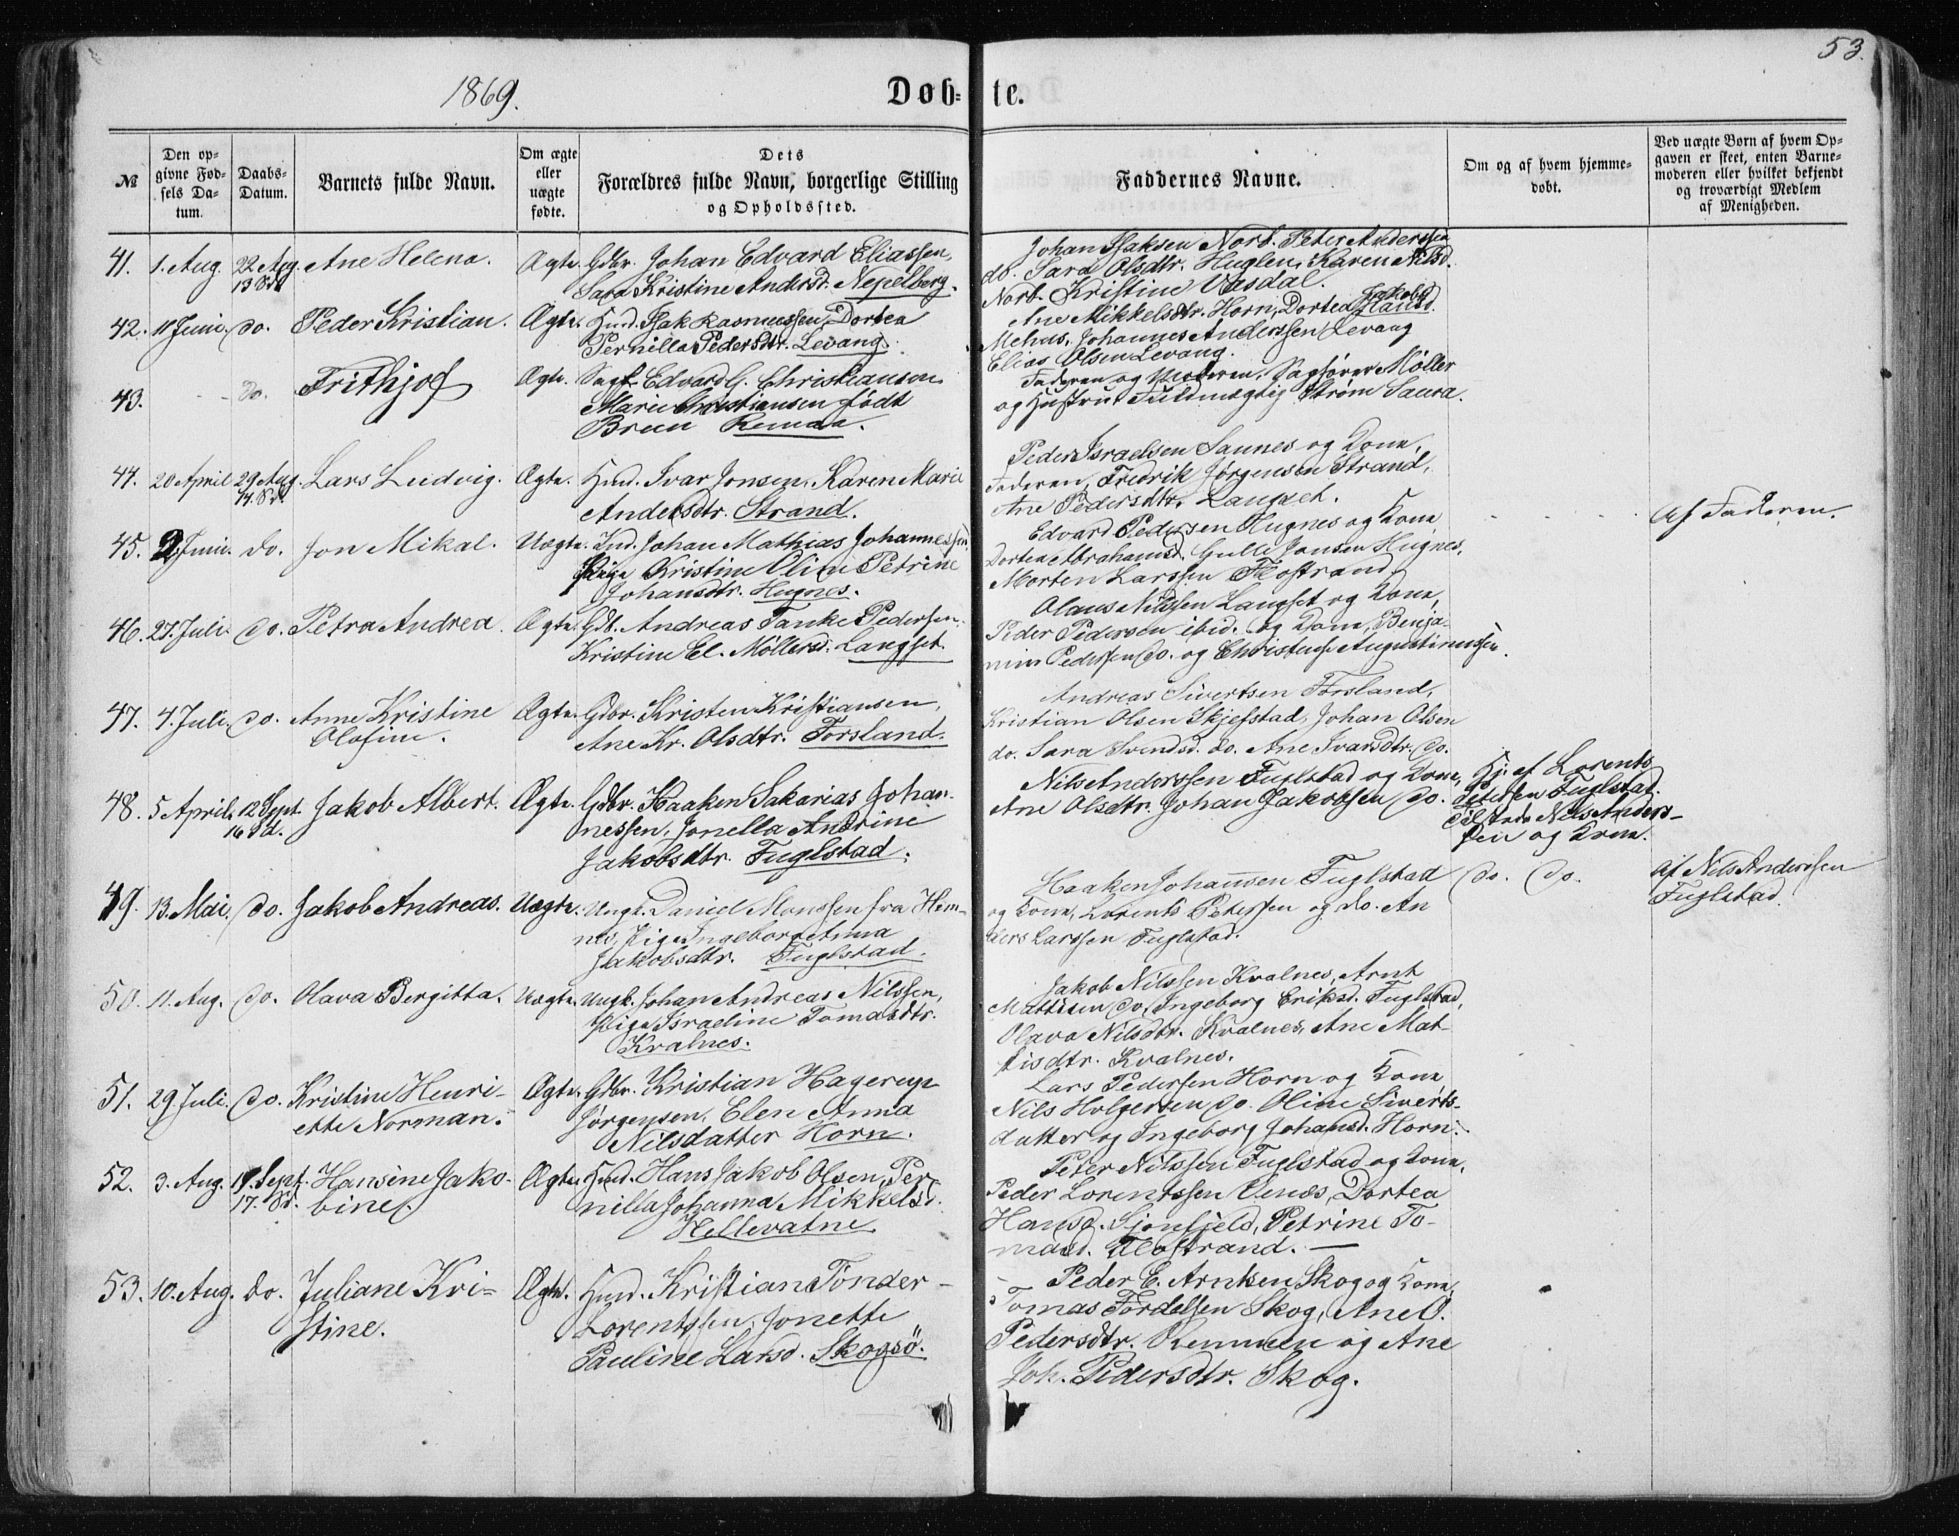 53.
1869.
Døb- te.
№
Den opgivne Fødsels Datum.
Daabs-Datum.
Barnets fulde Navn.
Om ægte eller uægte fødte.
Dets Forældres fulde Navn, borgerlige Stilling og Opholdssted.
Faddernes Navne.
Om og af hvem hjemmedøbt.
Ved uægte Børn af hvem Opgaven er skeet, enten Barnemoderen eller hvilket bekjendt og troværdigt Medlem af Menigheden.
41. 1. Aug. 22 Aug. Ane Helena. Ægte. Gdbr. Johan Edvard Eliassen,
13 Sd. Sara Kristine Andersd. Nepelberg.
Johan Isaksen Nord. Peter Anderssen
do. Sara Olsdtr. Huglen, Karen Nilsd.
Nord. Kristine Vasdal.
42. 11 Juni. do. Peder Kristian. Ægte. Husm. Isak Rasmussen, Dortea
Pernilla Pedersdtr. Levang.
Ane Mikkelsdtr. Horn, Dortea Jakobsd.
Mehus, Johannes Anderssen Levang
Elias Olsen Levang.
43. do. Frithjof Ægte. Sagf. Edvard G. Christiansen
Marie Christiansen født
Bruun Remaa.
Faderen og Moderen, Sagfører Møller
og Hustru, Fuldmægtig Strøm Saura.
44. 20 April 29 Aug. Lars Ludvig. Ægte. Husm. Ivar Jonsen, Karen Marie
14. Sd. Andersdtr. Strand.
Peder Israelsen Saunes og Kone,
Faderen, Fredrik Jørgensen Strand,
Ane Pedersdtr. Langset.
45. 2 Juni. do. Jon Mikal. Uægte. Ind. Johan Mathias Johannessen,
Pige Kristine Oline Petrine
Johansdtr. Hugnes.
Edvard Pederssen Hugnes og Kone
Dortea Abrahamsd. Gulle Jonsen Hugnes,
Morten Larssen Flostrand.
Af Faderen.
46. 27. Juli. do. Petra Andrea. Ægte. Gdb. Andreas Tanke Pedersen.
Kristine El. Møllersd. Langset.
Olaus Nilssen Langset og Kone,
Peder Pedersen ibid. og Kone, Benja-
min Pederssen do. og Christense Augustinussen.
47. 4. Juli. do. Anne Kristine Ægte. Gdbr. Kristen Kristiansen,
Olofine. Ane Kr. Olsdtr. Forsland.
Andreas Sivertsen Forsland,
Kristian Olsen Skjefstad, Johan Olsen
do. Sara Svendsd. do. Ane Ivarsdtr. do.
48. 5 April. 12 Sept. Jakob Albert. Ægte. Gdbr. Haaken Sakarias Johan-
16 Sd. nessen, Jonella Andrine
Jakobsdtr. Fuglstad.
Nils Anderssen Fuglstad og Kone,
Ane Olsdtr. Johan Jakobsen do.
Hj. af Lorents
Petersen Fuglstad.
Tilstede Nils Anders-
sen og Kone.
49. 13. Mai. do. Jakob Andreas. Uægte. Ungk. Daniel Monssen fra Hem-
nes, Pige Ingeborg Anna
Jakobsdtr. Fuglstad.
Haaken Johanssen Fuglstad
og Kone, Lorents Peterssen og do. An
ders Larssen Fuglstad.
do. do.
Af Nils Anderssen
Fuglstad.
50. 11. Aug. do. Olava Bergitta. Uægte. Ungk. Johan Andreas Nilssen,
Pige Israeline Tomasdtr.
Kvalnes.
Jakob Nilssen Kvalnes, Arnt
Mattisen do, Ingeborg Eriksd. Fuglstad,
Olava Nilsdtr. Kvalnes, Ane Mat-
tisdtr. Kvalnes.
51. 29 Juli. do. Kristine Henri- Ægte. Gdbr. Kristian Hagerup
ette Norman. Jørgensen, Elen Anna
Nilsdatter Horn.
Lars Pedersen Horn og Kone
Nils Holgersen do. Oline Siverts-
datter og Ingeborg Johansd. Horn.
52. 3. Aug. 19. Sept. Hansine Jako- Ægte. Husm. Hans Jakob Olsen, Per
17. Sd. bine. nilla Johanna Mikkelsd.
Hellevatne
Peter Nilssen Fuglstad og Kone,
Peder Lorentssen Venes, Dortea
Hansd. Sjonfjeld, Petrine To-
masd. Flostrand. —
53. 10. Aug. do. Juliane Kri- Ægte. Husm. Kristian Tönder
stine. Lorentssen, Jonette
Pauline Larsd. Skogsö.
Peder E. Arntsen Skog og Kone,
Tomas Fordelsen Skog, Ane O.
Pedersdtr. Remmen og Ane
Joh. Pedersdtr. Skog.